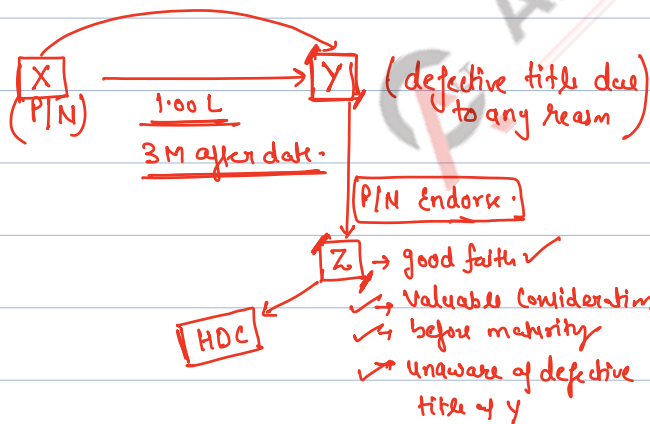 X
(P/N)
1.00 L
3 M after date.
Y
(defective title due
to any reason)
P/N Endorse.
Z → good faith ✓
✓→ Valuable Consideration
✓→ before maturity
✓→ Unaware of defective
title of Y
HDC
A